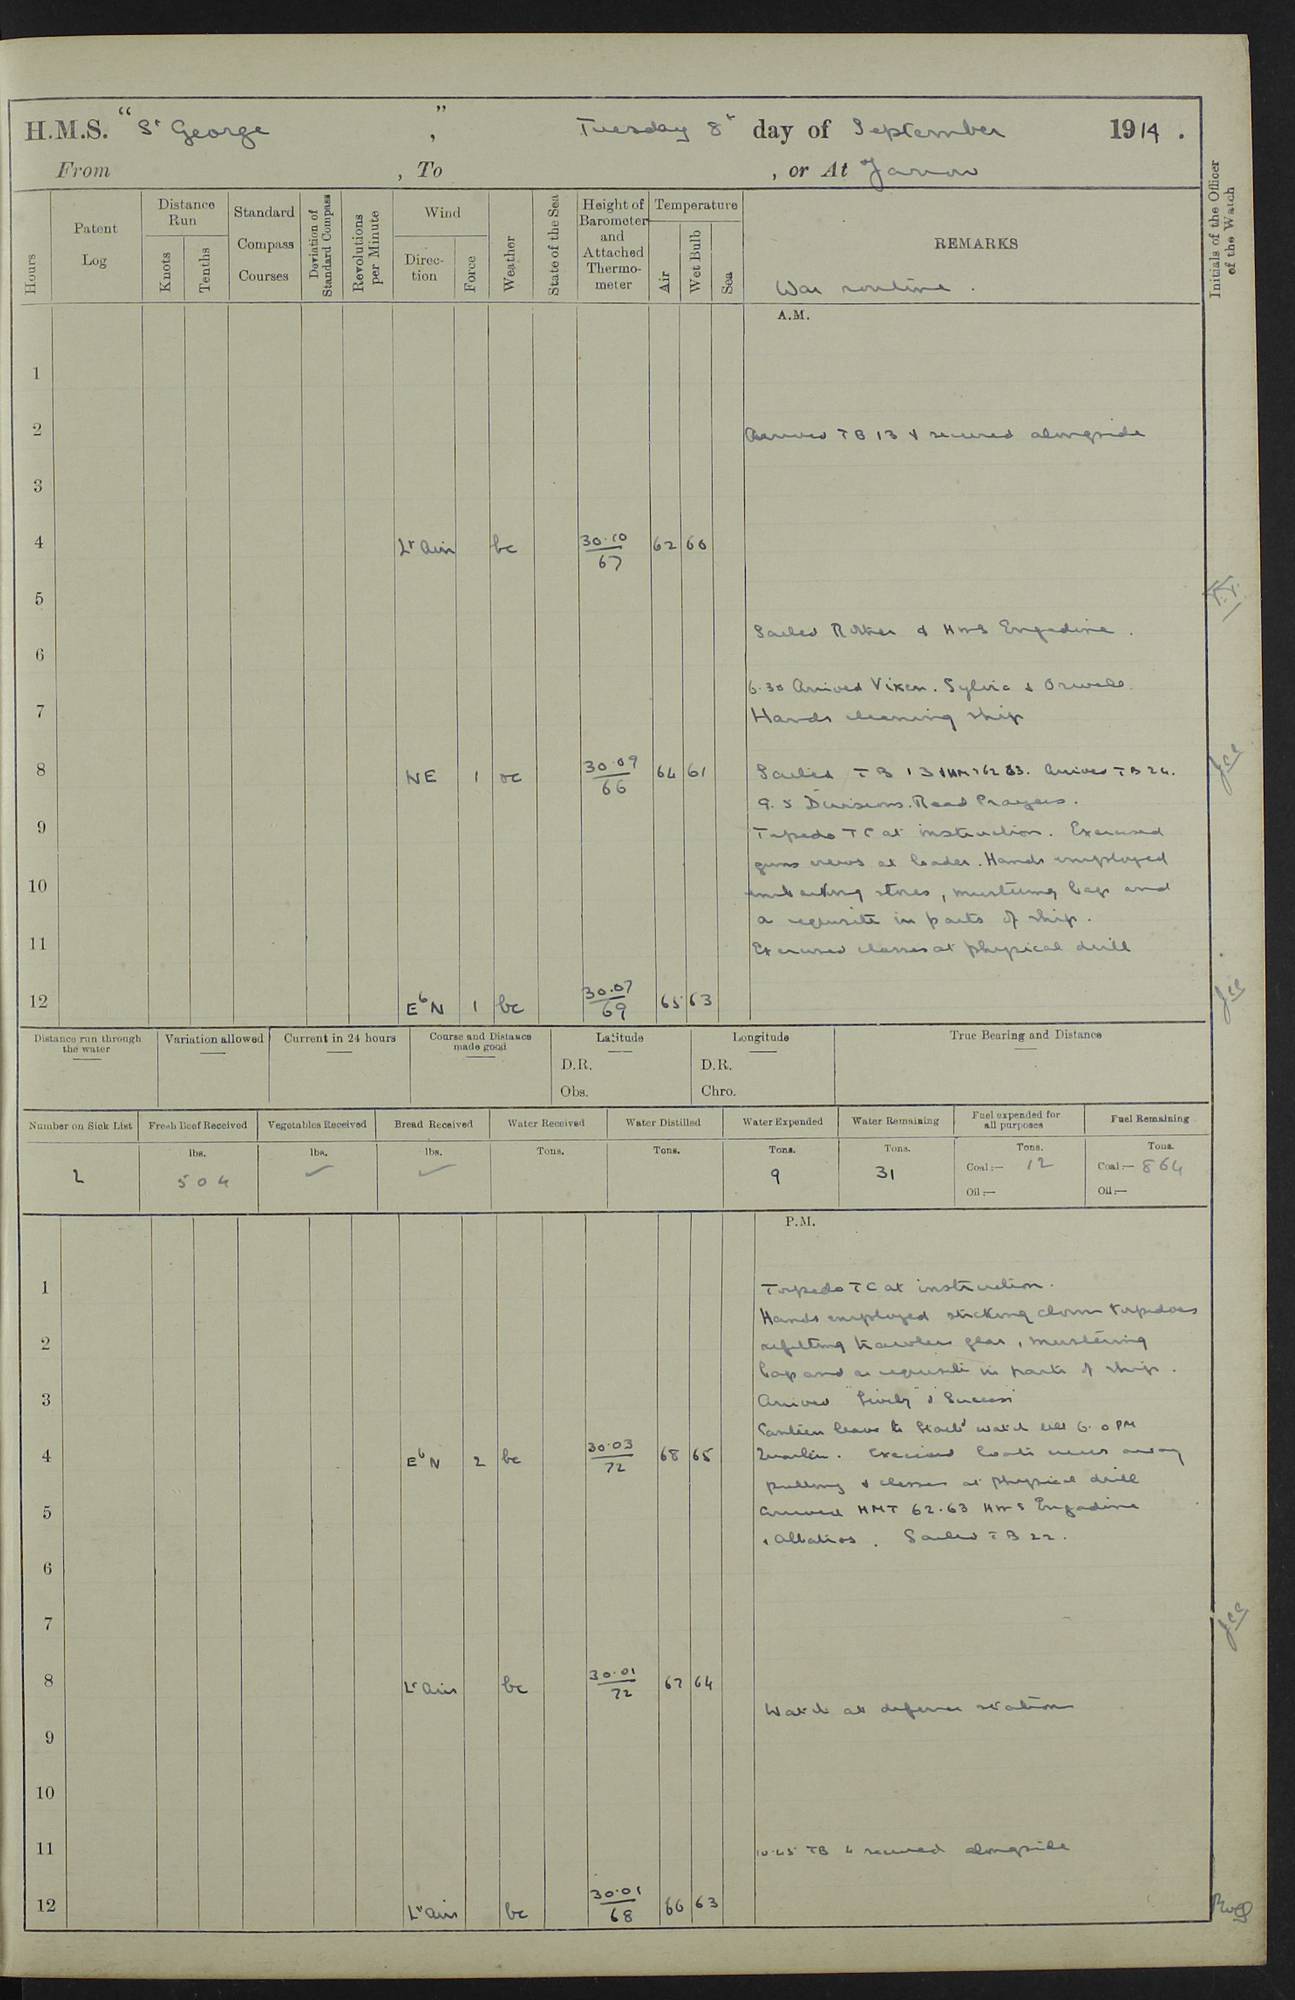 H.M.S. " St George ", Tuesday 8th day of September 1914.
From , To , or At Jarrow
Hours
Patent Log
Distance Run
Knots
Tenths
Standard Compass Courses
Deviation of Standard Compass
Revolutions per Minute
Wind
Direction
Force
Weather
State of the Sea
Height of Barometer and Attached Thermometer
Temperature
Air
Wet Bulb
Sea
REMARKS
War routine.
Initials of the Officer of the Watch
A.M.
1
2 Arrived TB 13 & secured alongside
3
4 Lt Air bc 30.10/67 62 60
5
Sailed & HMS Engadine.
6
6.30 Arrived Vixen. Sylvia & Orwell.
7 Hands cleaning ship
8 NE 1 oc 30.09/66 64 61 Sailed TB 13 & HMT 62 63. Arrived TB 24.
9.5 Divisions. Read Prayers.
9 Torpedo TC at instruction. Exercised
guns crews at loader. Hands employed
10 embarking stores, mustering bags and
a requisite in parts of ship.
11 Exercised classes at physical drill
12 EbN 1 bc 30.07/69 65 63
Distance run through the water
Variation allowed
Current in 24 hours
Course and Distance made good
Latitude
D.R.
Obs.
Longitude
D.R.
Chro.
True Bearing and Distance
Number on Sick List
Fresh Beef Received
Vegetables Received
Bread Received
Water Received
Water Distilled
Water Expended
Water Remaining
Fuel expended for all purposes
Fuel Remaining
2
lbs. 504
lbs. ✓
lbs. ✓
Tons.
Tons.
Tons. 9
Tons. 31
Tons.
Coal:— 12
Oil:—
Tons.
Coal:— 864
Oil:—
P.M.
1 Torpedo TC at instruction.
Hands employed striking down torpedoes
2 refitting trawlers gear, mustering
bags and as requisite in parts of ship.
3 Arrived "Lively" & "Success"
Canteen leave to Starbd watch till 6.0 PM
4 EbN 2 bc 30.03/72 68 65 Quarters. Exercised boats crews away
pulling & classes at physical drill
5 Arrived HMT 62.63 HMS Engadine
& Albatros. Sailed TB 22.
6
7
8 Lt Airs bc 30.01/72 67 64
Watch at defence stations
9
10
11 10.45 TB 4 secured alongside
12 Lt Airs bc 30.01/68 66 63